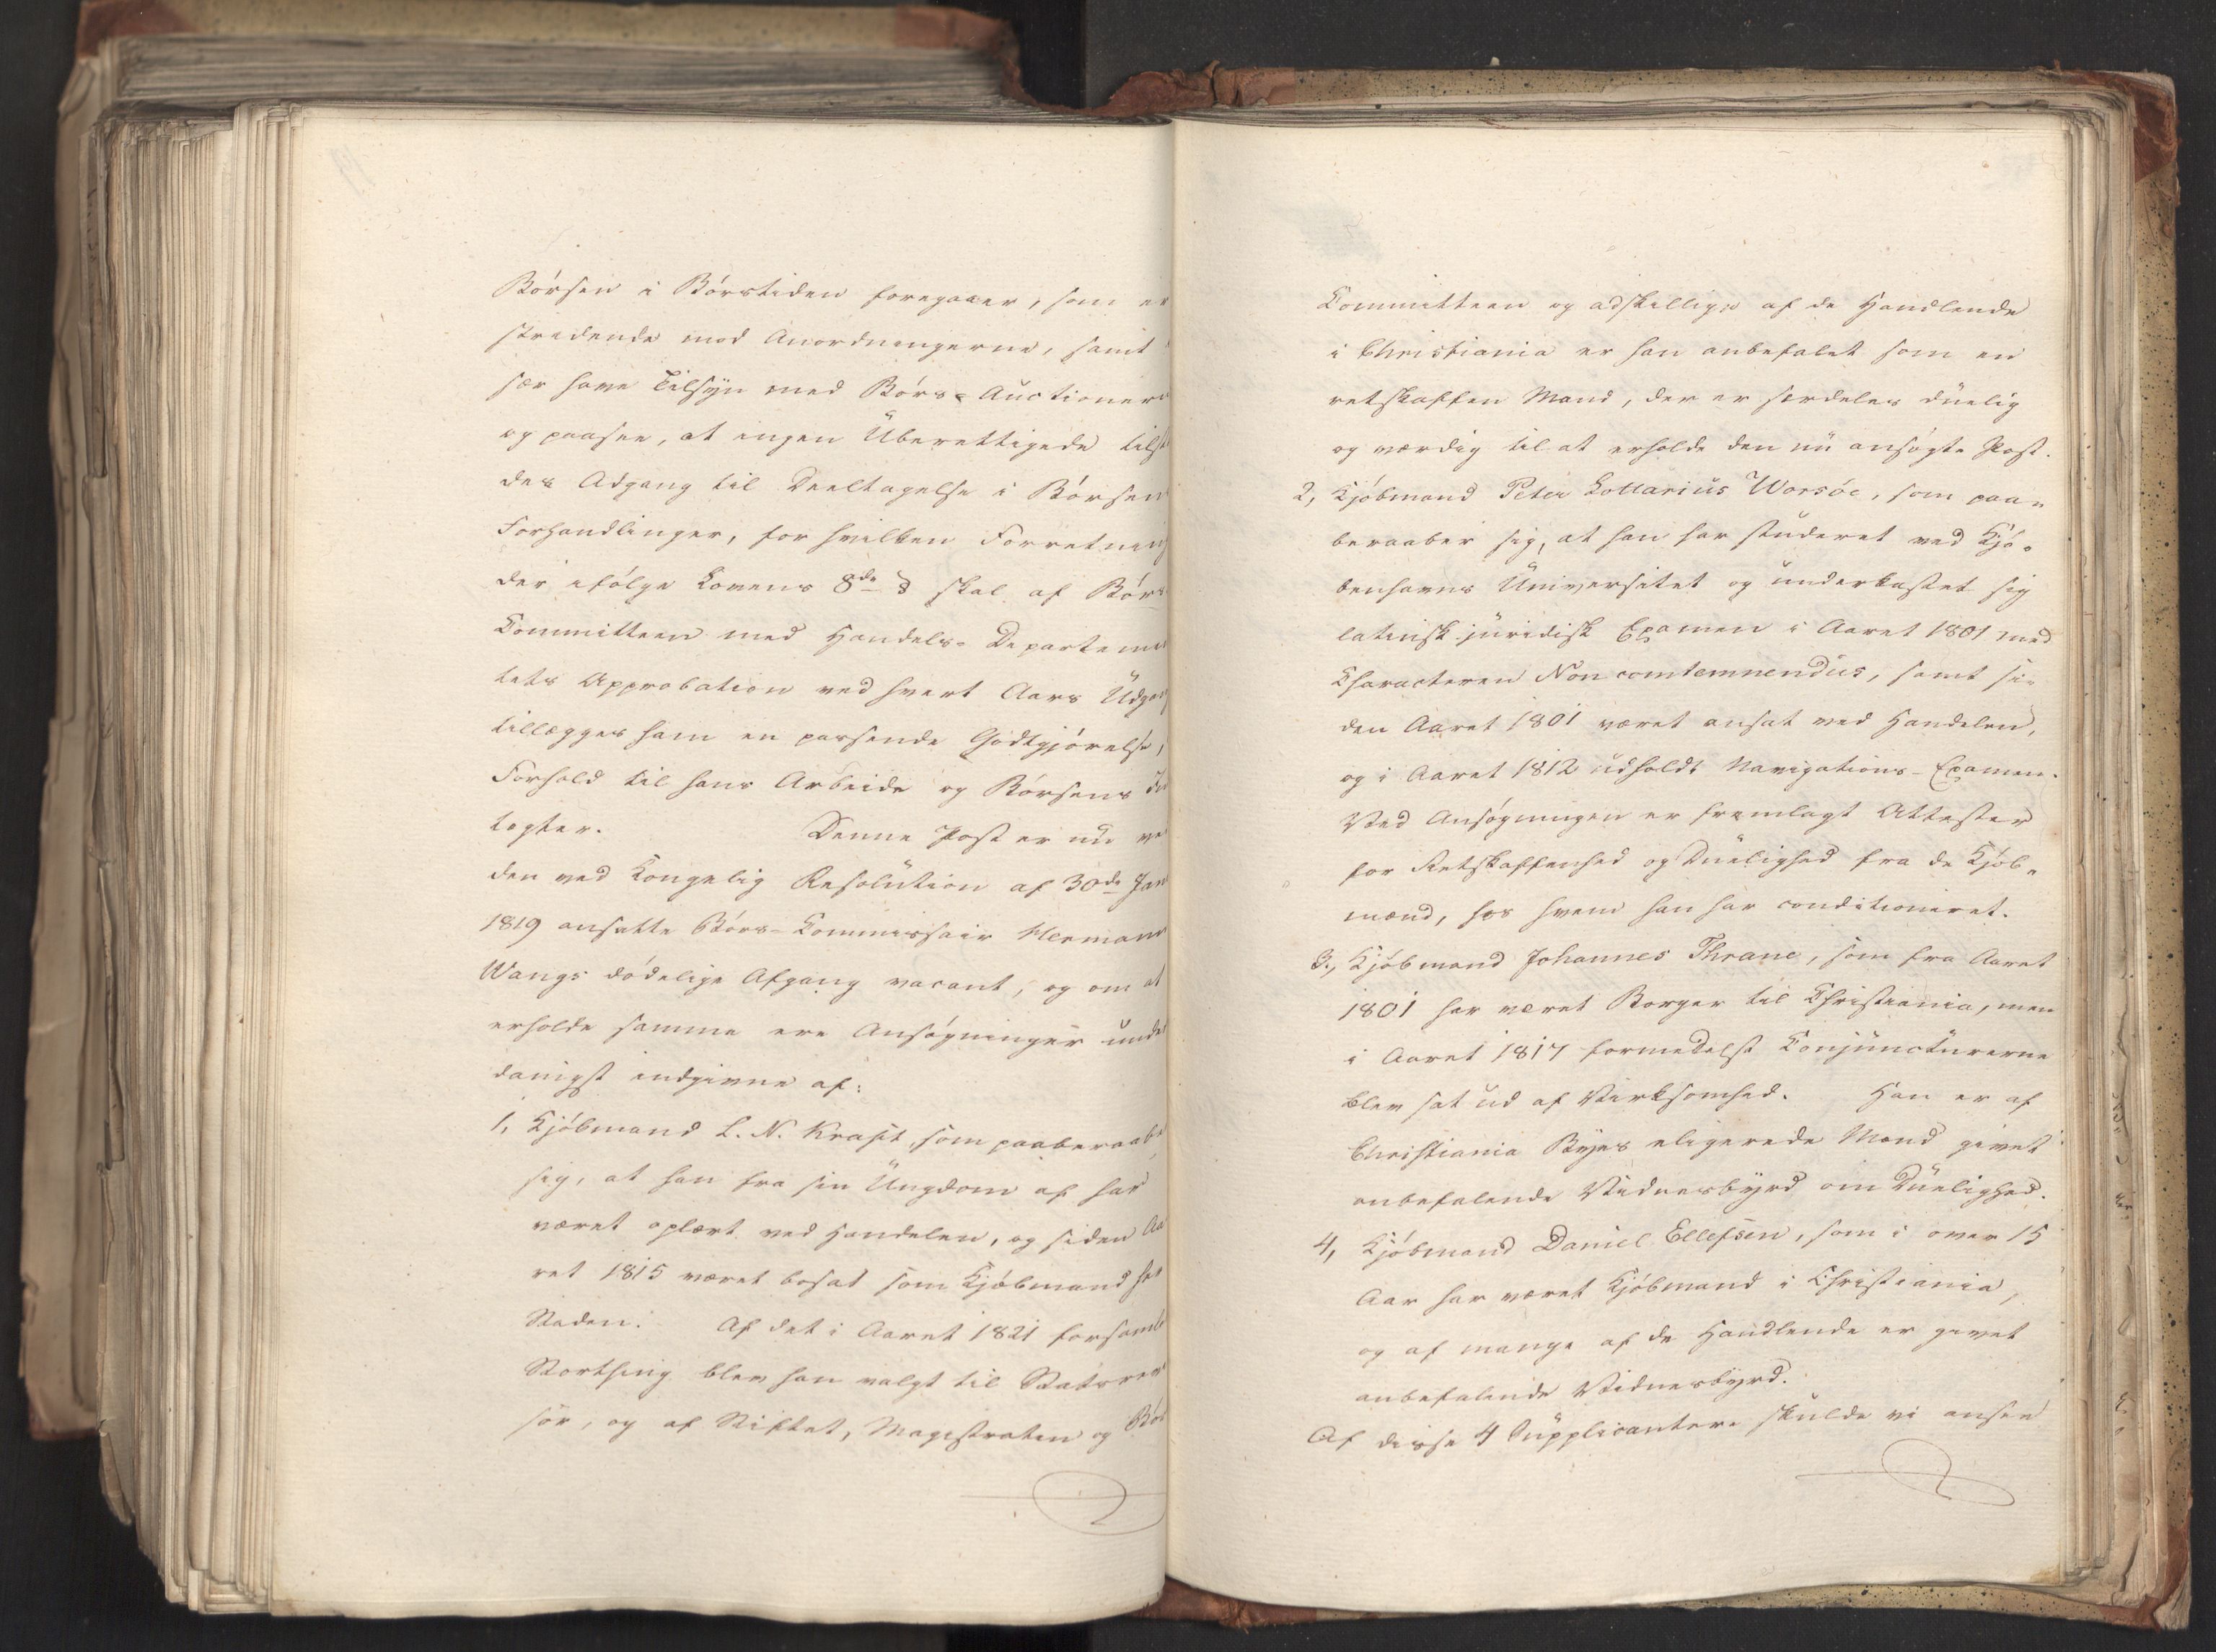 Börsen i Börstiden foregaaer, som er
stridende mod Anordningerne, samt
sær have Tilsyn med Börs-Auctioner
og paasee, at ingen Uberettigede tilste
des Adgang til Deeltagelse i Börsen
Forhandlinger, for hvilken Forretning
der ifölge Lovens 8de § skal af Börs
Committeen med Handels-Departemen
tets Approbation ved hvert Aars Udgang
tillægges ham en passende Godtgjörelse,
Forhold til hans Arbeide og Börsens In
tægter. Denne Post er nu ve
den ved Kongelig Resolution af 30de Jan
1819 ansatte Börs-Commissair Hermann
Wangs dödelige Afgang vacant, og om at
erholde samme ere Ansögninger under
danigst indgivne af:
1, Kjöbmand L. N. Kraft, som paaberaabe
sig, at han fra sin Ungdom af har
været oplært ved Handelen, og siden Aa
ret 1815 været bosat som Kjöbmand her
Staden. Af det i Aaret 1821 forsamle
Storthing blev han valgt til Statsrevi
sör, og af Stiftet, Magistraten og Börs
Committeen og adskillige af de Handlende
i Christiania er han anbefalet som en
retskaffen Mand, der er særdeles duelig
og værdig til at erholde den nu ansögte Post.
2, Kjöbmand Peter Lottarius Worsöe, som paa-
beraaber sig, at han har studeret ved Kjö-
benhavns Universitet og underkastet sig
latinsk juridisk Examen i Aaret 1801 med
Characteren Non comtemnendus, samt si-
den Aaret 1801 været ansat ved Handelen,
og i Aaret 1812 udholdt Navigations-Examen.
Ved Ansögningen er fremlagt Attester
for Retskaffenhed og Duelighed fra de Kjöb-
mænd, hos hvem han har conditioneret.
3., Kjöbmand Johannes Thrane, som fra Aaret
1801 har været Borger til Christiania, men
i Aaret 1817 formedelst Conjuncturerne
blev sat ud af Virksomhed. Han er af
Christiania Byes eligerede Mænd givet
anbefalende Vidnesbyrd om Duelighed.
4, Kjöbmand Daniel Ellefsen, som i over 15
Aar har været Kjöbmand i Christiania,
og af mange af de Handlende er givet
anbefalende Vidnesbyrd.
Af disse 4 Supplicantere skulde vi ansee